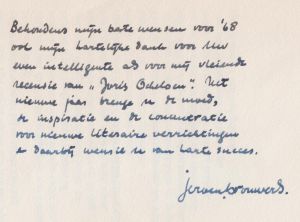 Behoudens mijn beste wensen voor '68
ook mijn hartelijke dank voor Uw
even intelligente als voor mij vleiende
recensie van „Joris Ockeloen". Het
nieuwe jaar brenge u de moed,
de inspiratie en de concentratie
voor nieuwe literaire verrichtingen
& daarbij wens ik u van harte succes.
Jeroen Brouwers.